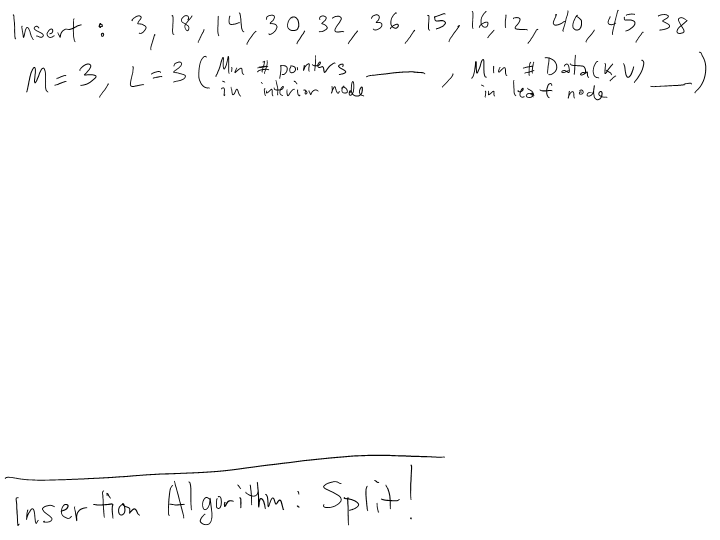 Insert : 3, 18, 14, 30, 32, 36, 15, 16, 12, 40, 45, 38
M = 3, L = 3 ( Min # pointers ____ , Min # Data(K,V) ___ )
in interior node in leaf node
Insertion Algorithm: Split!